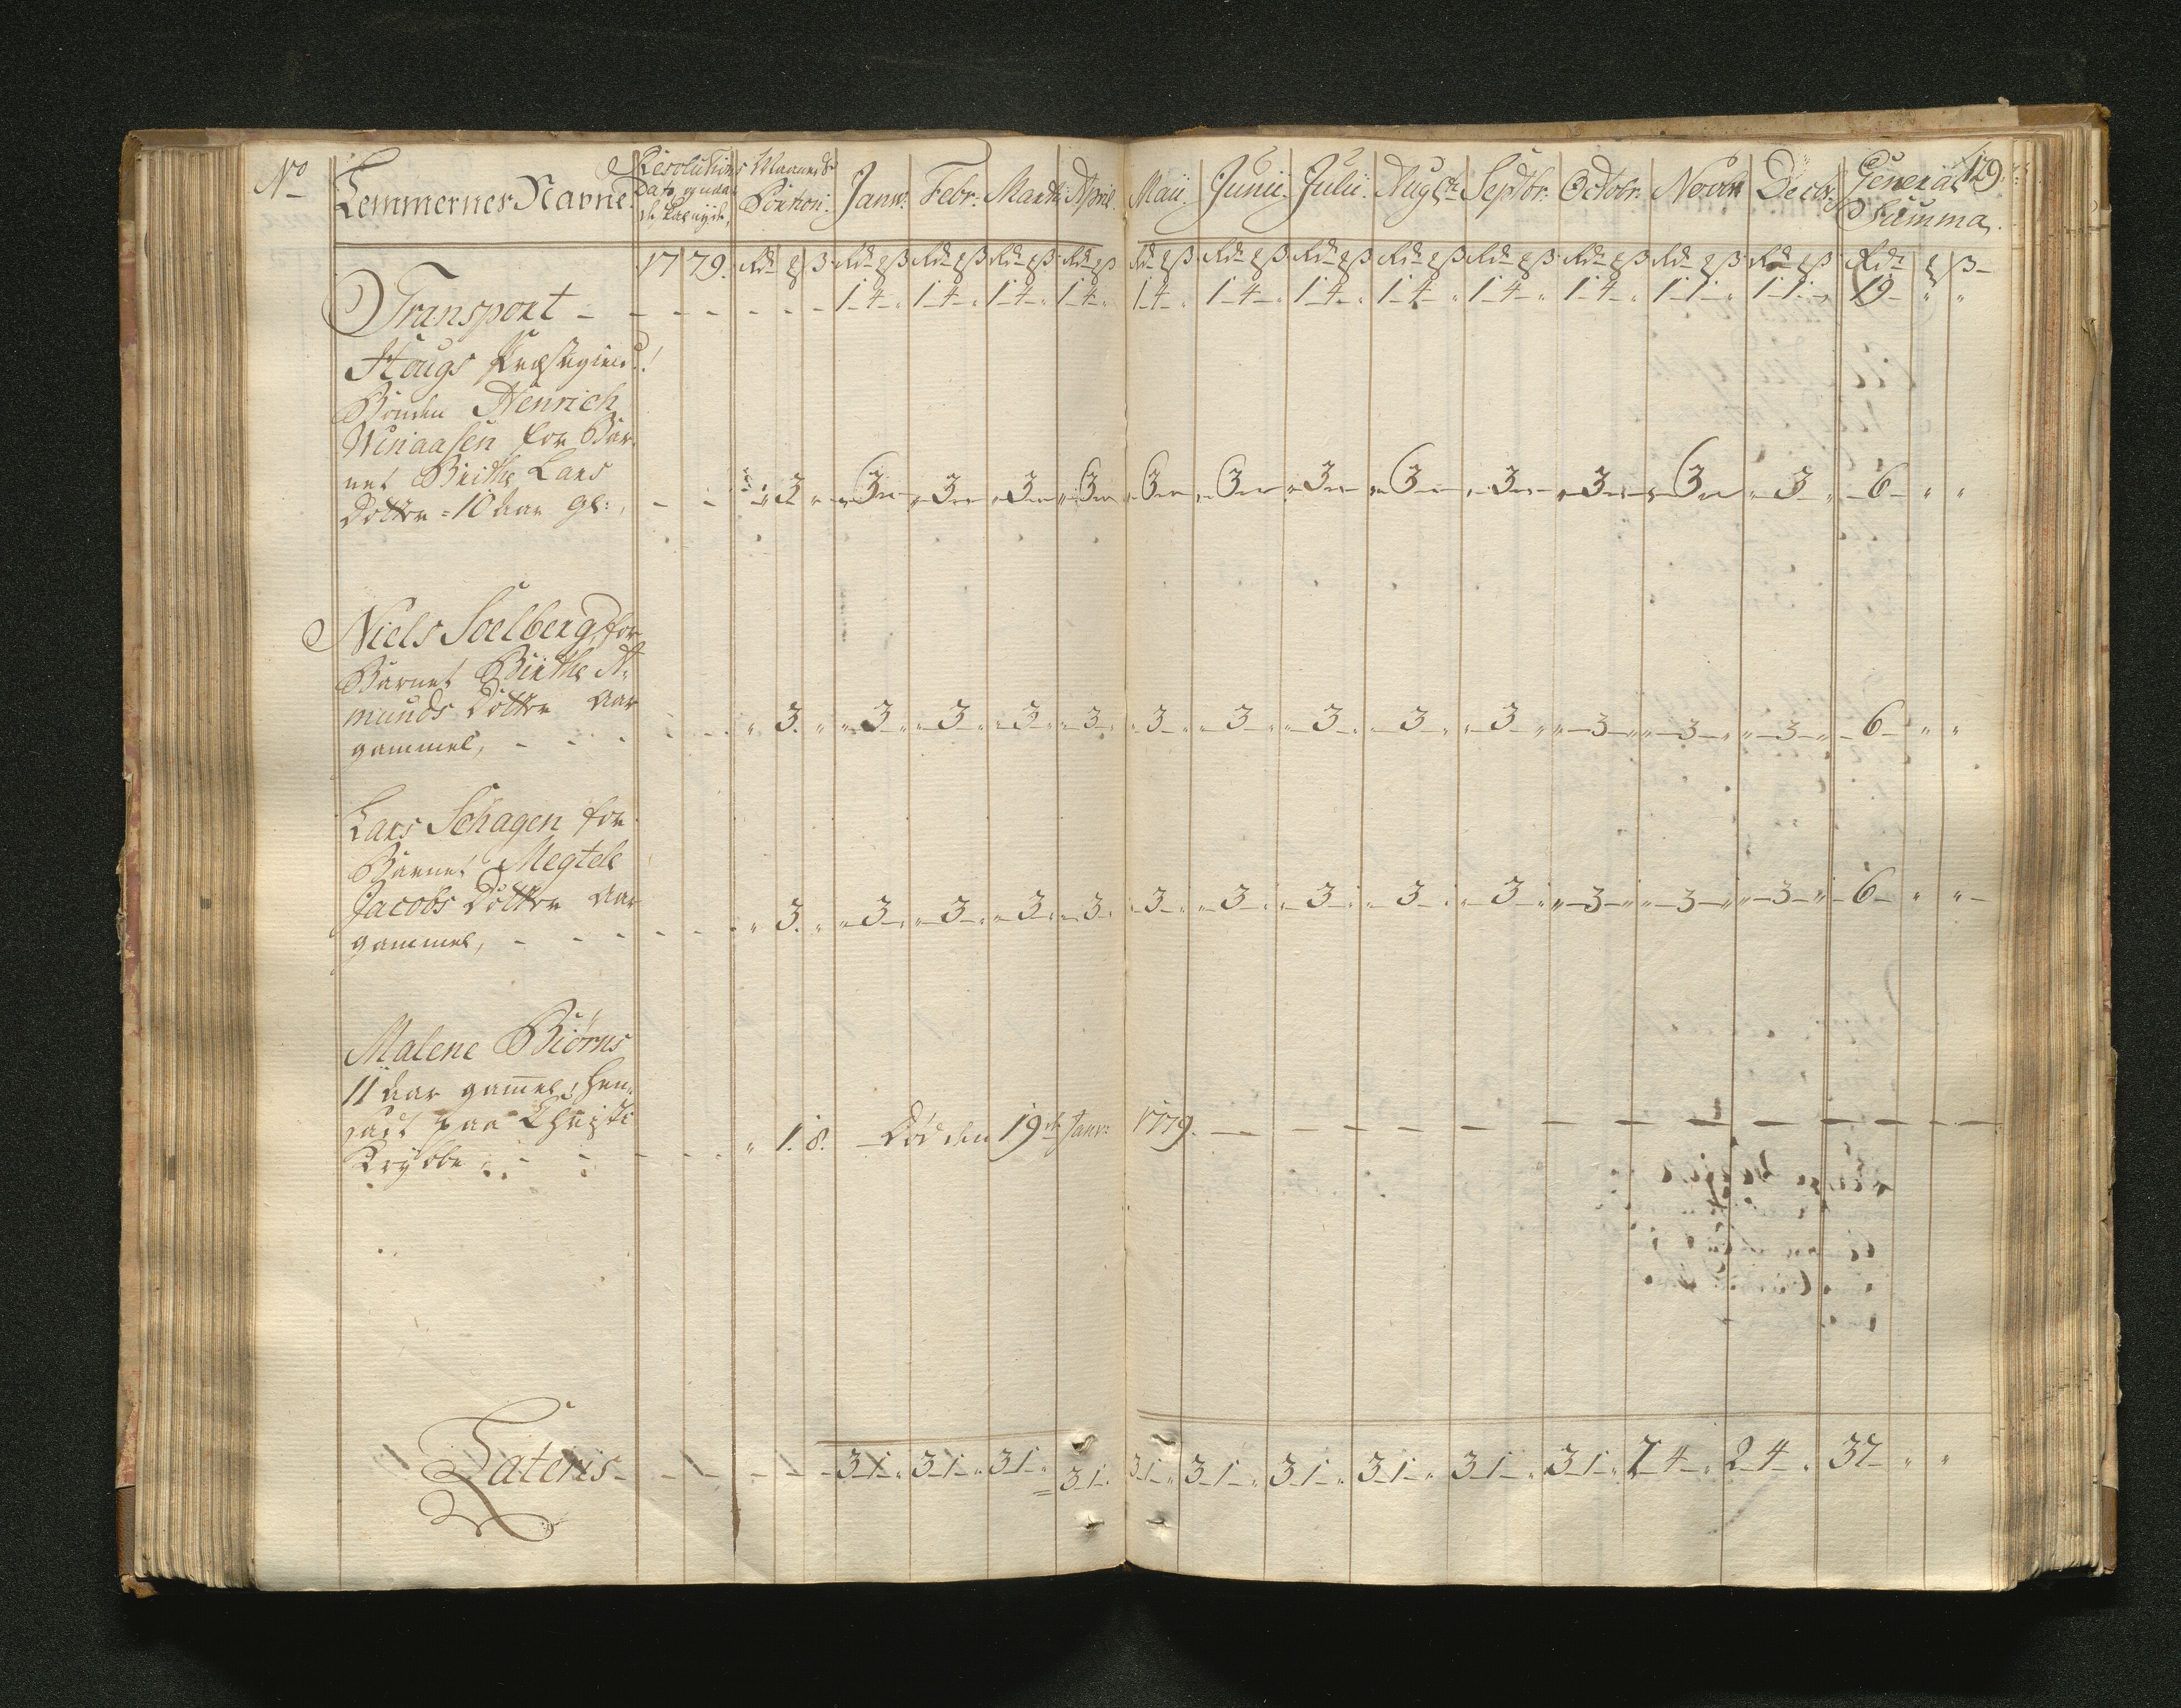 No Lemmernes Navne. Resolutions Dato Maaneds Portion. Janv: Febr: Marti: April. Maii. Junii. Julii. Augst: Septbr: Octobr: Novbr Decbr: General Summa. 179.
1779. Rdr ß Rdr ß Rdr ß Rdr ß Rdr ß Rdr ß Rdr ß Rdr ß Rdr ß Rdr ß Rdr ß Rdr ß Rdr ß Rdr ß
Transport - - - - 1-4-" 1-4-" 1-4-" 1-4-" 1-4-" 1-4-" 1-4-" 1-4-" 1-4-" 1-4-" 1-1-" 1-1-" 19-" "
Hougs Præstegield!
Bonden Henrich
Winaasen for Bar-
net Birthe Lars
Dotter = 10 Aar gl: - - " 3 " " 3 " " 3 " " 3 " " 3 " " 3 " " 3 " " 3 " " 3 " " 3 " " 3 " " 3 " " 3 " 6 " "
Niels Soelberg for
Barnet Birthe A-
munds Dotter Aar
gammel, - - - " 3. " " 3 " " 3 " " 3 " " 3 " " 3 " " 3 " " 3 " " 3 " " 3 " " 3 " " 3 " " 3 " 6 " "
Lars Schagen for
Barnet Megtele
Jacobs Dotter Aar
gammel, - - - " 3. " " 3 " " 3 " " 3 " " 3 " " 3 " " 3 " " 3 " " 3 " " 3 " " 3 " " 3 " " 3 " 6 " "
Malene Biörns
11 Aar gamel, hen-
sadt paa Christi
Krybbe, - - - " 1. 8. - Död den 19de Janv: 1779. - - - -
Lateris - - - 3-1-" 3-1-" 3-1-" 3-1-" 3-1-" 3-1-" 3-1-" 3-1-" 3-1-" 3-1-" 2-4-" 2-4-" 37-" "